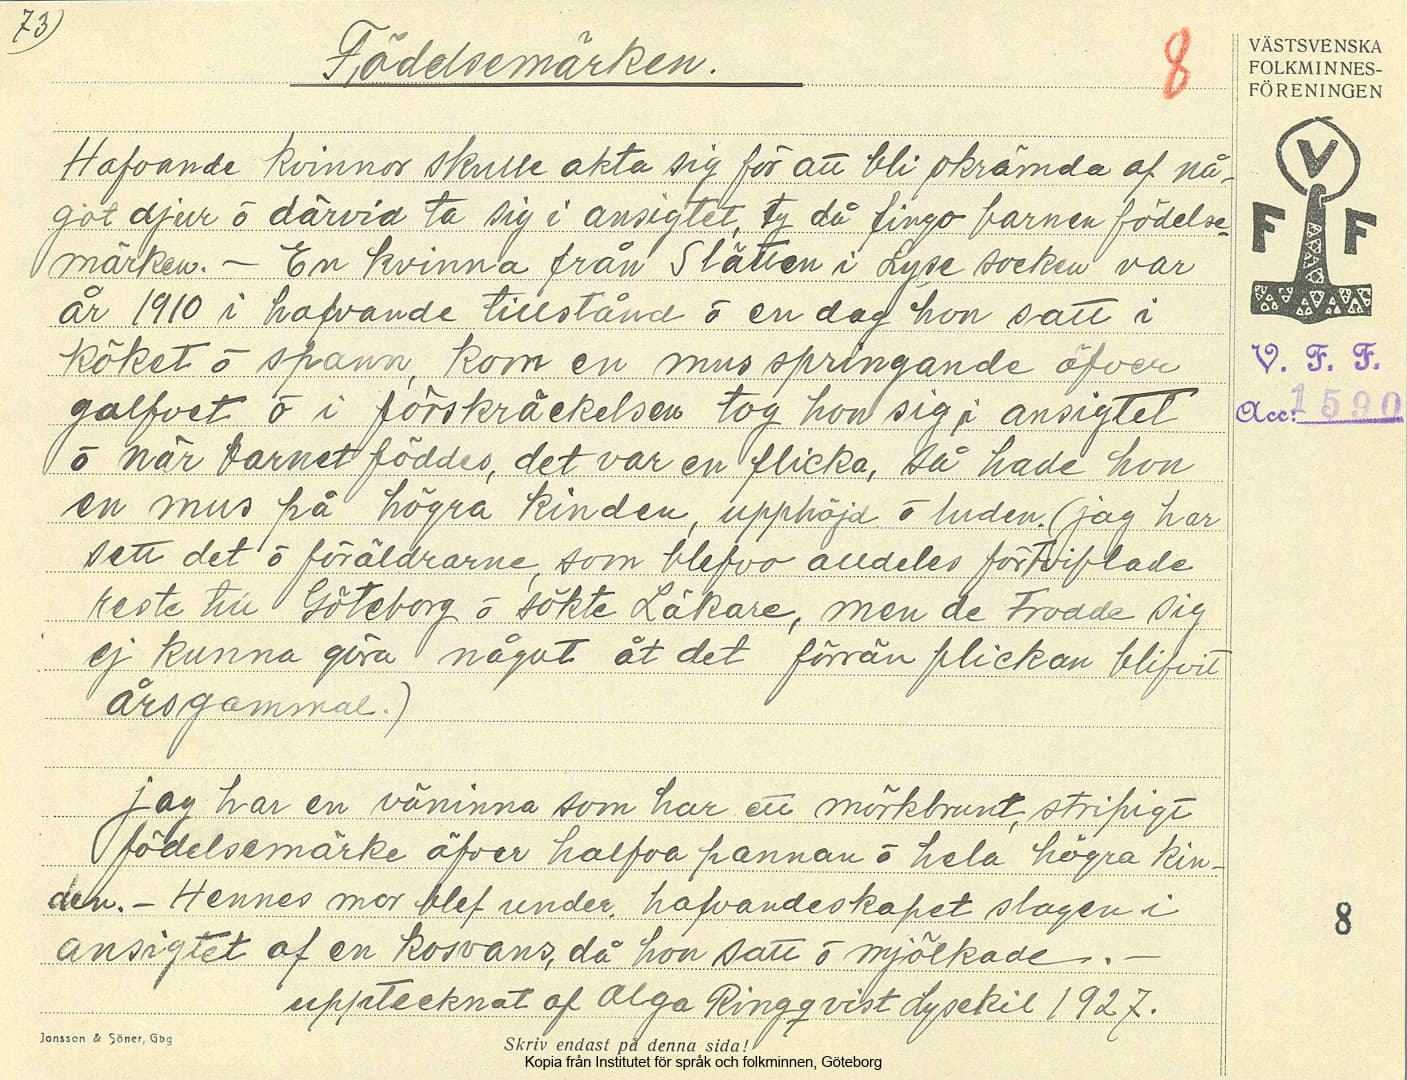 73)
Födelsemärken.
8
VÄSTSVENSKA
FOLKMINNES-
FÖRENINGEN
V
F F
V. F. F.
Acc: 1590
Hafvande kvinnor skulle akta sig för att bli skrämda af nå-
got djur ō därvid ta sig i ansigtet, ty då fingo barnen födelse-
märken. – En kvinna från Slätten i Lyse socken var
år 1910 i hafvande tillstånd ō en dag hon satt i
köket ō spann, kom en mus springande öfver
golfvet ō i förskräckelsen tog hon sig i ansigtet
ō när barnet föddes, det var en flicka, så hade hon
en mus på högra kinden, upphöjd ō luden. (jag har
sett det ō föräldrarne, som blefvo alldeles förtviflade
reste till Göteborg ō sökte Läkare, men de trodde sig
ej kunna göra något åt det förrän flickan blifvit
årsgammal.)
jag har en väninna som har ett mörkbrunt, stripigt
födelsemärke öfver halfva pannan ō hela högra kin-
den. – Hennes mor blef under hafvandeskapet slagen i
ansigtet af en kosvans, då hon satt ō mjölkade. –
upptecknat af Olga Ringqvist Lysekil 1927.
8
Jonsson & Söner, Gbg
Skriv endast på denna sida!
Kopia från Institutet för språk och folkminnen, Göteborg